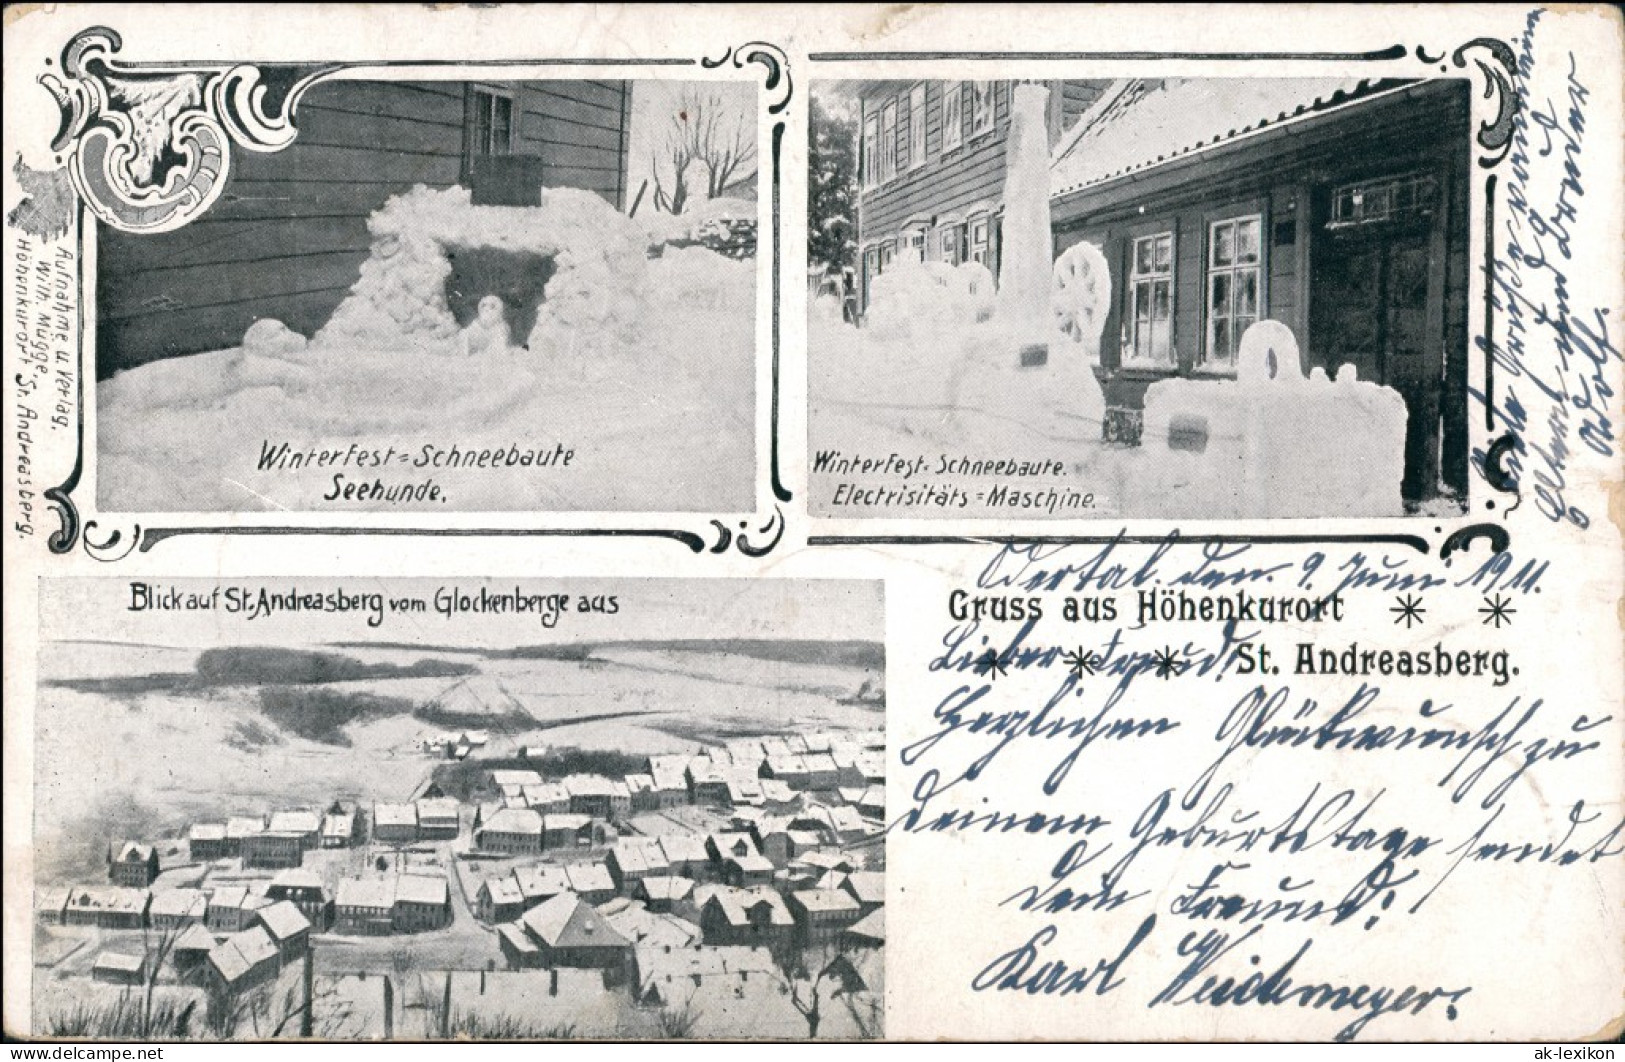 Aufnahme u. Verlag.
Wilh. Mügge,
Höhenkurort St. Andreasberg.
Winterfest=Schneebaute
Seehunde.
Winterfest=Schneebaute.
Electrisitäts=Maschine.
Blick auf St. Andreasberg vom Glockenberge aus
Gruss aus Höhenkurort
St. Andreasberg.
Odertal. den. 9. Juni 1911.
Lieber Freund!
Herzlichen Glückwunsch zu
deinem Geburtstage sendet
dein Freund:
Karl Weidemeyer.
Eltern und
ak-lexikon